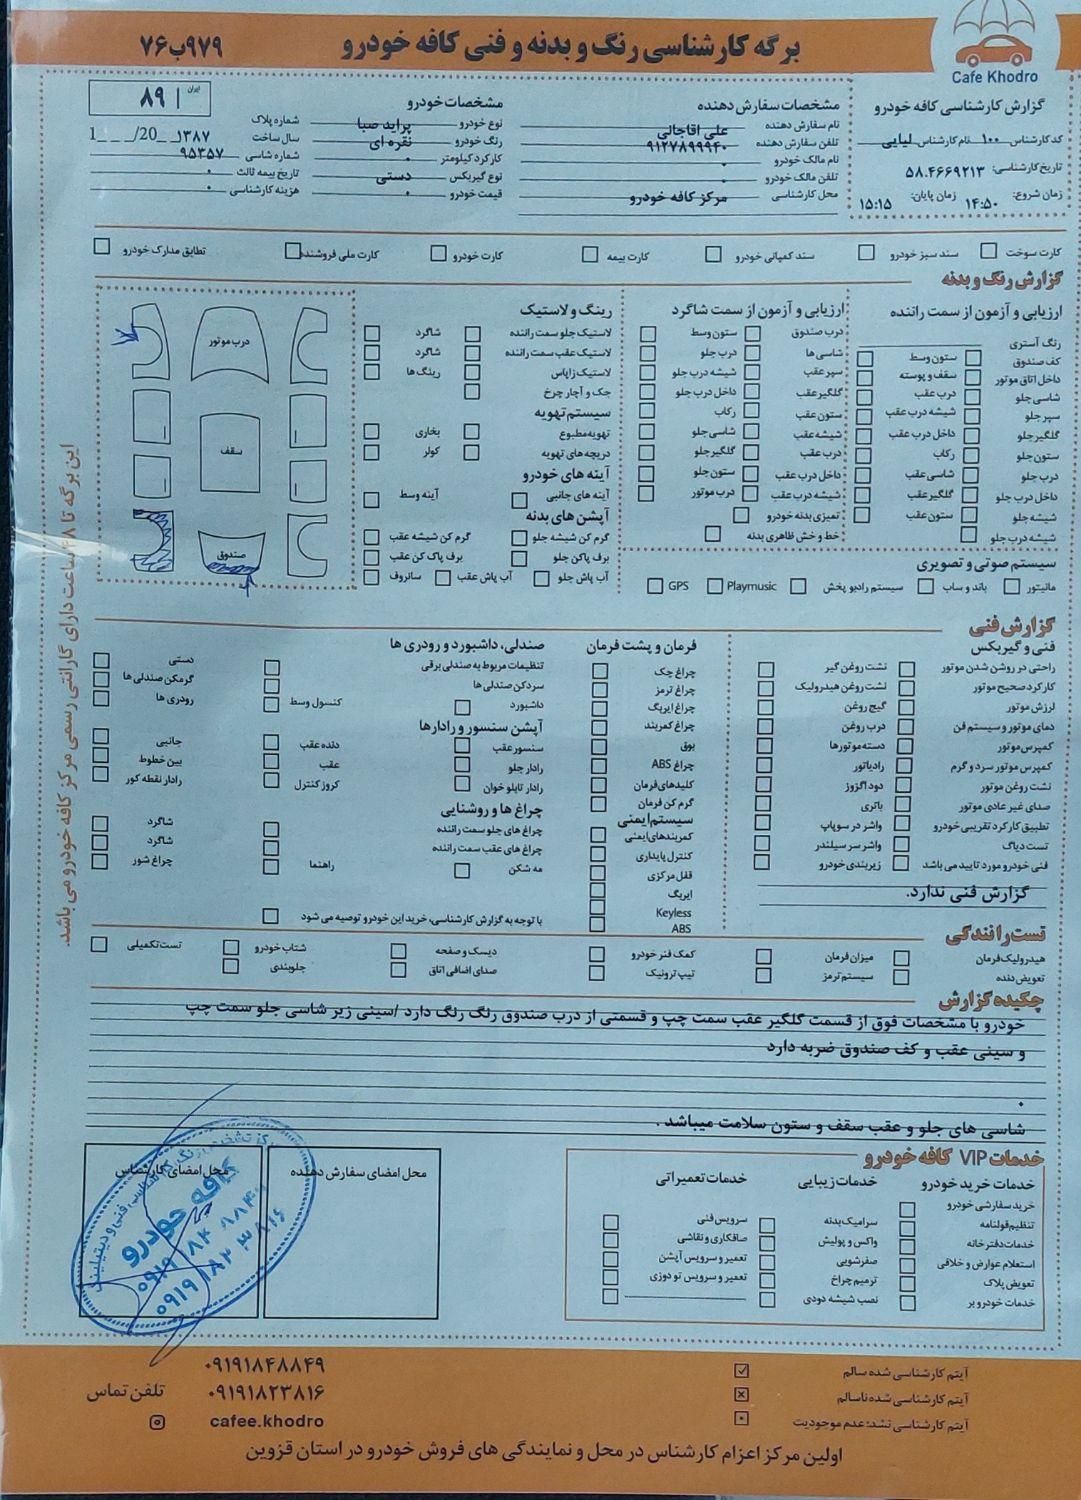 برگه کارشناسی رنگ و بدنه و فنی کافه خودرو
۷۶ب۹۷۹
Cafe Khodro
گزارش کارشناسی کافه خودرو
کد کارشناس ۱۰۰ نام کارشناس لیایی
تاریخ کارشناسی: ۵۸.۴۶۶۹۲۱۳
زمان شروع: ۱۴:۵۰ زمان پایان: ۱۵:۱۵
مشخصات سفارش دهنده
نام سفارش دهنده علی اقاجالی
تلفن سفارش دهنده ۹۱۲۷۸۹۹۹۴۰
نام مالک خودرو ۰
تلفن مالک خودرو ۰
محل کارشناسی مرکز کافه خودرو
مشخصات خودرو
نوع خودرو پراید صبا
رنگ خودرو نقره ای
کارکرد کیلومتر ۰
نوع گیربکس دستی
قیمت خودرو ۰
ایران ۸۹
شماره پلاک
سال ساخت ۱۳۸۷ 1_ _ _/20_ _
شماره شاسی ۹۵۳۵۷
تاریخ بیمه ثالث ۰
هزینه کارشناسی ۰
کارت سوخت
سند سبز خودرو
سند کمپانی خودرو
کارت بیمه
کارت خودرو
کارت ملی فروشنده
تطابق مدارک خودرو
گزارش رنگ و بدنه
ارزیابی و آزمون از سمت راننده
رنگ آستری
کف صندوق
داخل اتاق موتور
شاسی جلو
سپر جلو
گلگیر جلو
ستون جلو
درب جلو
داخل درب جلو
شیشه جلو
شیشه درب جلو
ستون وسط
سقف و پوسته
درب عقب
شیشه درب عقب
داخل درب عقب
رکاب
شاسی عقب
گلگیر عقب
ستون عقب
ارزیابی و آزمون از سمت شاگرد
درب صندوق
شاسی ها
سپر عقب
گلگیر عقب
ستون عقب
شیشه عقب
درب عقب
داخل درب عقب
شیشه درب عقب
تمیزی بدنه خودرو
خط و خش ظاهری بدنه
ستون وسط
درب جلو
شیشه درب جلو
داخل درب جلو
رکاب
شاسی جلو
گلگیر جلو
ستون جلو
درب موتور
رینگ و لاستیک
لاستیک جلو سمت راننده شاگرد
لاستیک عقب سمت راننده شاگرد
لاستیک زاپاس رینگ ها
جک و آچار چرخ
سیستم تهویه
تهویه مطبوع بخاری
دریچه های تهویه کولر
آینه های خودرو
آینه های جانبی آینه وسط
آپشن های بدنه
گرم کن شیشه جلو گرم کن شیشه عقب
برف پاکن جلو برف پاک کن عقب
آب پاش جلو آب پاش عقب سانروف
درب موتور
سقف
صندوق
سیستم صوتی و تصویری
مانیتور باند و ساب سیستم رادیو پخش Playmusic GPS
گزارش فنی
فنی و گیربکس
راحتی در روشن شدن موتور
کارکرد صحیح موتور
لرزش موتور
دمای موتور و سیستم فن
کمپرس موتور
کمپرس موتور سرد و گرم
نشت روغن موتور
صدای غیر عادی موتور
تطبیق کارکرد تقریبی خودرو
تست دیاگ
فنی خودرو مورد تایید می باشد
نشت روغن گیر
نشت روغن هیدرولیک
گیج روغن
درب روغن
دسته موتورها
رادیاتور
دود اگزوز
باتری
واشر در سوپاپ
واشر سر سیلندر
زیربندی خودرو
گزارش فنی ندارد.
فرمان و پشت فرمان
چراغ چک
چراغ ترمز
چراغ ایربگ
چراغ کمربند
بوق
چراغ ABS
کلیدهای فرمان
گرم کن فرمان
سیستم ایمنی
کمربندهای ایمنی
کنترل پایداری
قفل مرکزی
ایربگ
Keyless
ABS
صندلی، داشبورد و رودری ها
تنظیمات مربوط به صندلی برقی دستی
سردکن صندلی ها گرمکن صندلی ها
داشبورد کنسول وسط رودری ها
آپشن سنسور و رادارها
سنسور عقب دنده عقب جانبی
رادار جلو عقب بین خطوط
رادار تابلو خوان کروز کنترل رادار نقطه کور
چراغ ها و روشنایی
چراغ های جلو سمت راننده شاگرد
چراغ های عقب سمت راننده شاگرد
مه شکن راهنما چراغ شور
با توجه به گزارش کارشناسی، خرید این خودرو توصیه می شود
تست رانندگی
هیدرولیک فرمان میزان فرمان کمک فنر خودرو دیسک و صفحه شتاب خودرو تست تکمیلی
تعویض دنده سیستم ترمز تیپ ترونیک صدای اضافی اتاق جلوبندی
چکیده گزارش
خودرو با مشخصات فوق از قسمت گلگیر عقب سمت چپ و قسمتی از درب صندوق رنگ رنگ دارد /سینی زیر شاسی جلو سمت چپ
و سینی عقب و کف صندوق ضربه دارد
۰
شاسی های جلو و عقب سقف و ستون سلامت میباشد .
خدمات VIP کافه خودرو
خدمات خرید خودرو
خرید سفارشی خودرو
تنظیم قولنامه
خدمات دفترخانه
استعلام عوارض و خلافی
تعویض پلاک
خدمات خودرو بر
خدمات زیبایی
سرامیک بدنه
واکس و پولیش
صفرشویی
ترمیم چراغ
نصب شیشه دودی
خدمات تعمیراتی
سرویس فنی
صافکاری و نقاشی
تعمیر و سرویس آپشن
تعمیر و سرویس تو دوزی
محل امضای سفارش دهنده
محل امضای کارشناس
کافه خودرو
۰۹۱۹۱۸۴۸۸۴۹
۰۹۱۹۱۸۲۳۸۱۶
این برگه تا ۴۸ ساعت دارای گارانتی رسمی مرکز کافه خودرو می باشد.
آیتم کارشناسی شده سالم
آیتم کارشناسی شده ناسالم
آیتم کارشناسی نشد: عدم موجودیت
تلفن تماس
۰۹۱۹۱۸۴۸۸۴۹
۰۹۱۹۱۸۲۳۸۱۶
cafee.khodro
اولین مرکز اعزام کارشناس در محل و نمایندگی های فروش خودرو در استان قزوین